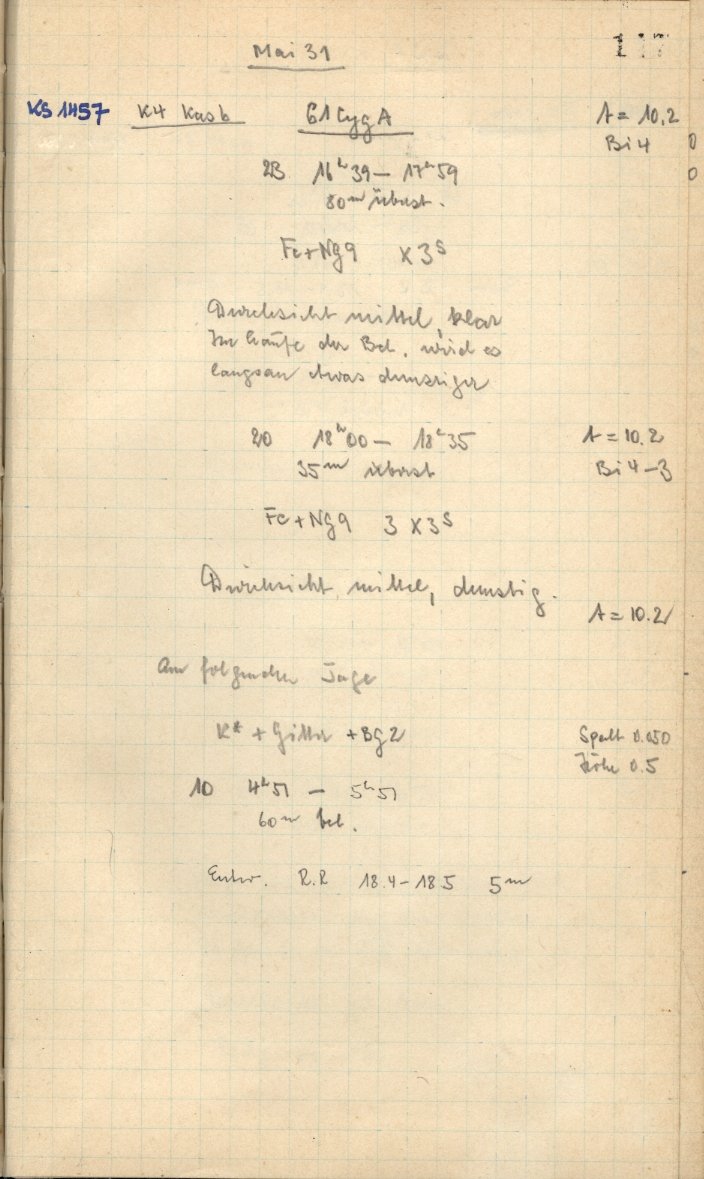 Mai 31
117
KS 1457 K4 Kas b 61 Cyg A A = 10.2
Bi 4
23 16ʰ39 – 17ʰ59
80ᵐ übust.
Fe + Ng9 x 3ˢ
Durchsicht mittel, klar
Im Laufe der Bel. wird es
langsam etwas dunstiger
20 18ʰ00 – 18ʰ35 A = 10.2
35ᵐ Bi 4–3
Fe + Ng9 3 x 3ˢ
Durchsicht mittel, dunstig.
A = 10.2
Am folgenden Tage
K* + Gitter + BG2 Spalt 0.050
Höhe 0.5
10 4ʰ51 – 5ʰ51
60ᵐ bel.
Entw. R.R 18.4–18.5 5ᵐ